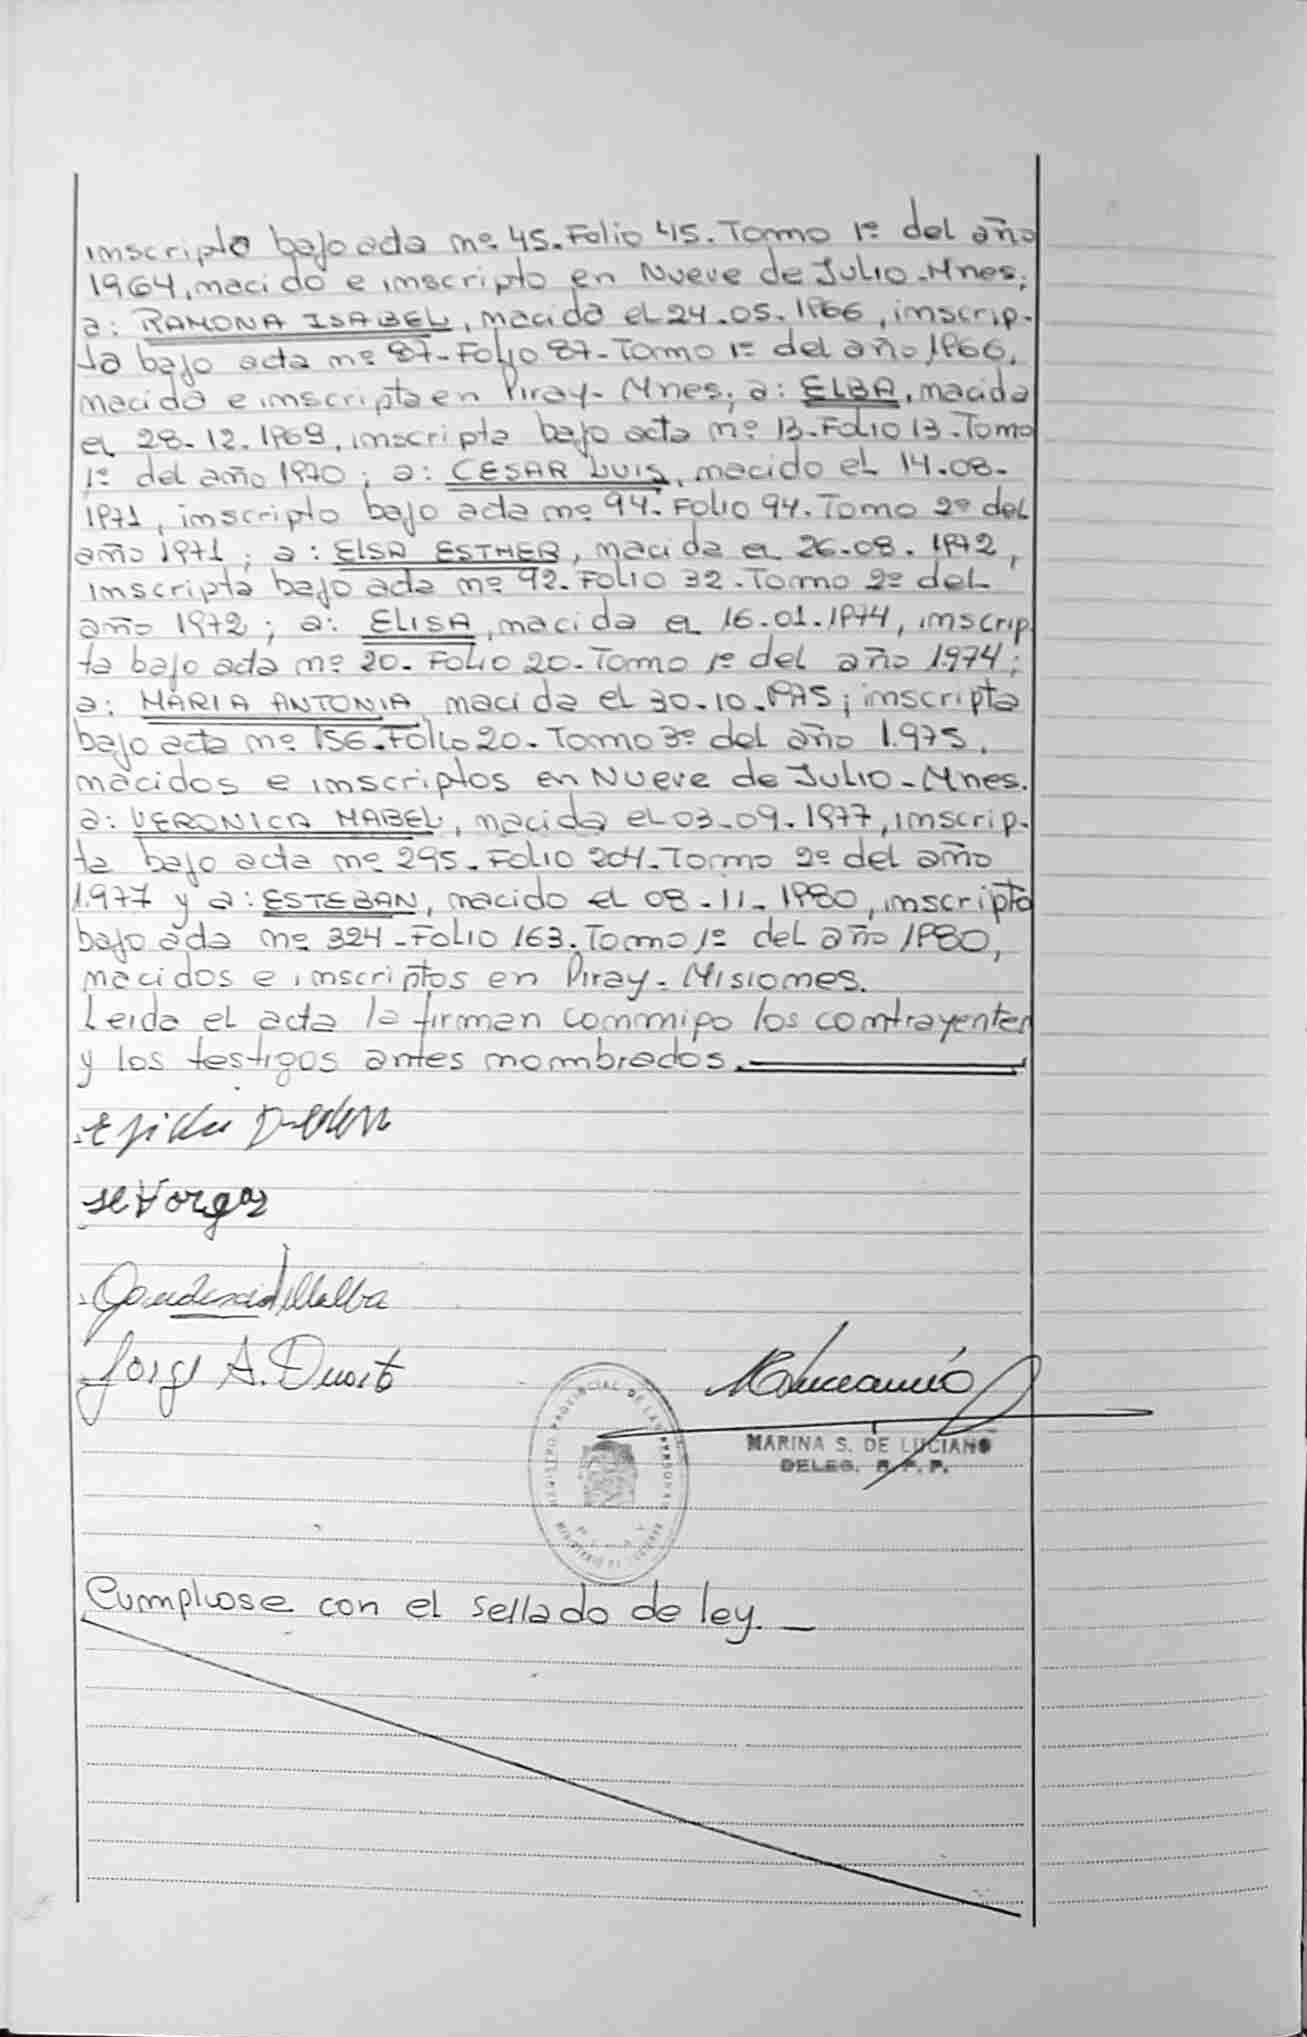 inscripto bajo acta nº 45. Folio 45. Tomo 1º del año
1964, nacido e inscripto en Nueve de Julio - Mnes;
a: RAMONA ISABEL, nacida el 24.05.1966, inscrip-
ta bajo acta nº 87 - Folio 87 - Tomo 1º del año 1966,
nacida e inscripta en Piray - Mnes; a: ELBA, nacida
el 28.12.1969, inscripta bajo acta nº 13 - Folio 13 - Tomo
1º del año 1970; a: CESAR LUIS, nacido el 14.08.
1971, inscripto bajo acta nº 94. Folio 94. Tomo 2º del
año 1971; a: ELSA ESTHER, nacida el 26.08.1972,
inscripta bajo acta nº 92. Folio 32. Tomo 2º del
año 1972; a: ELISA, nacida el 16.01.1974, inscrip
ta bajo acta nº 20. Folio 20. Tomo 1º del año 1974;
a: MARIA ANTONIA nacida el 30.10.1975; inscripta
bajo acta nº 156. Folio 20. Tomo 3º del año 1.975,
nacidos e inscriptos en Nueve de Julio - Mnes.
a: VERONICA MABEL, nacida el 03-09.1977, inscrip-
ta bajo acta nº 295. Folio 204. Tomo 2º del año
1.977 y a: ESTEBAN, nacido el 08.11.1980, inscripto
bajo acta nº 324 - Folio 163. Tomo 1º del año 1980,
nacidos e inscriptos en Piray - Misiones.
Leida el acta la firman conmigo los contrayentes
y los testigos antes nombrados.
Vargas
Villalba
Jorge A. Duarte
MARINA S. DE LUCIANO
DELEG. R.P.P.
REGISTRO PROVINCIAL DE LAS PERSONAS
PIRAY
Cumpliose con el sellado de ley. _